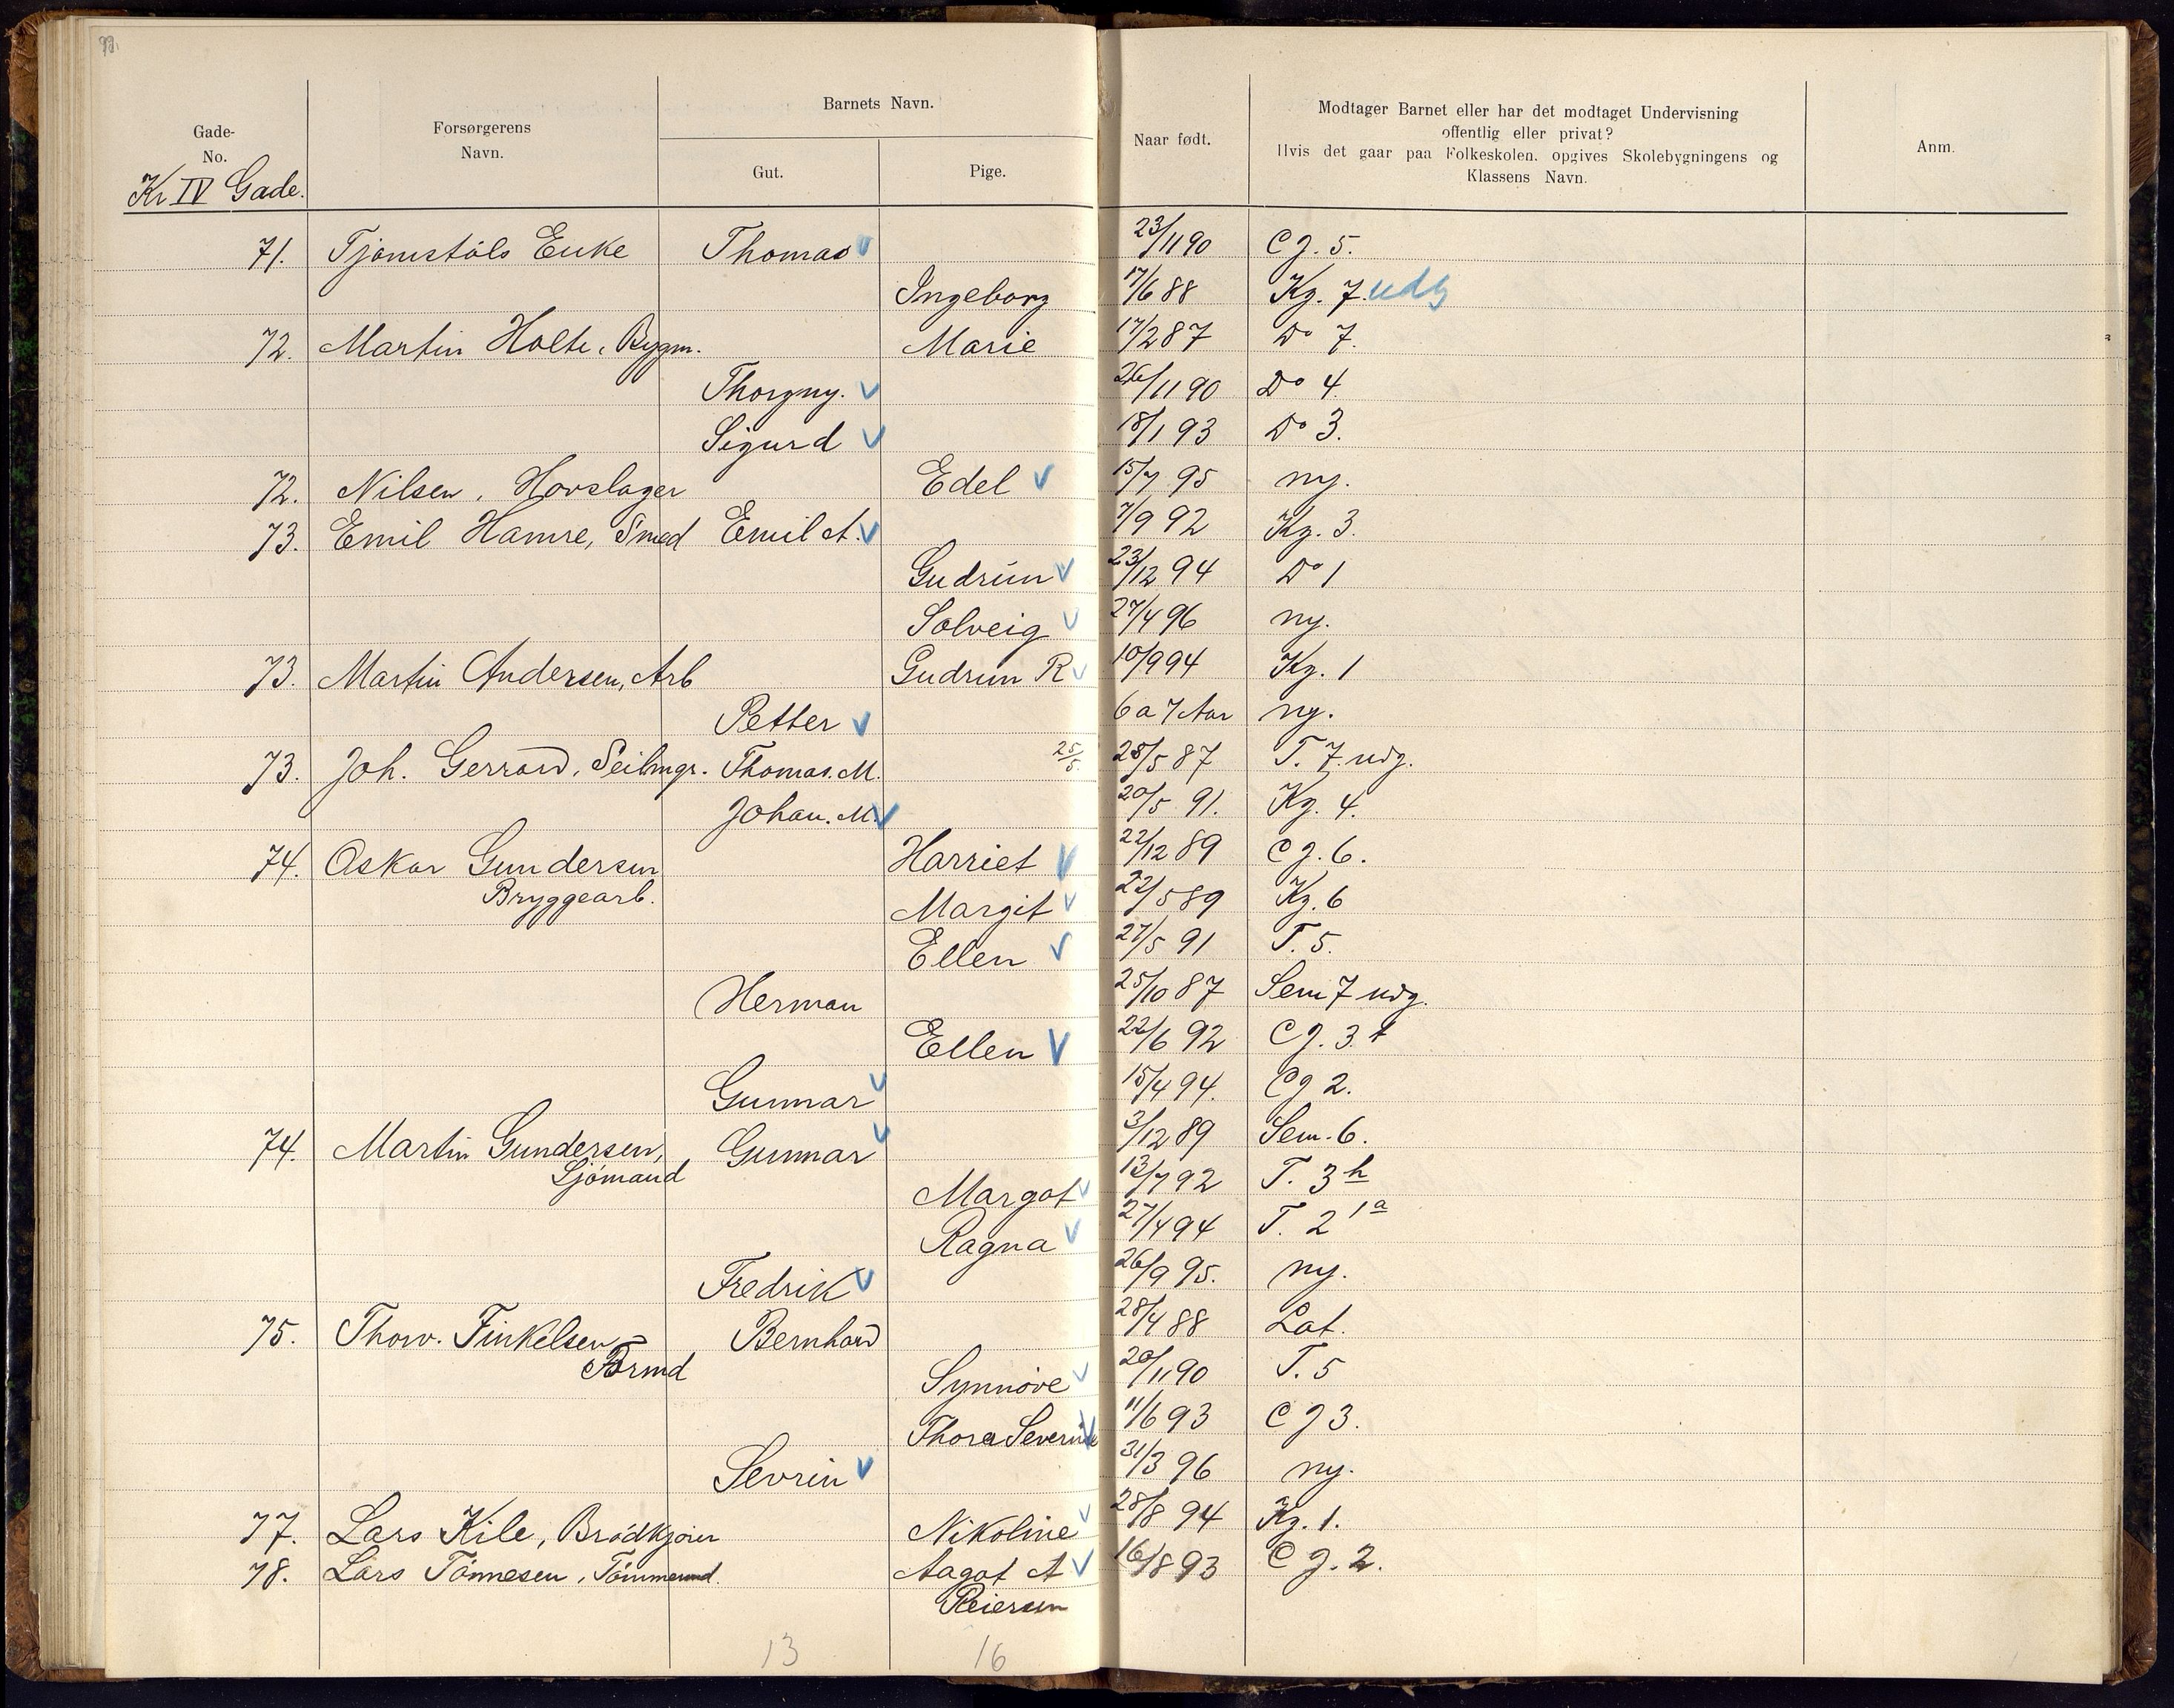 99.
Gade-
No.
Forsørgerens
Navn.
Barnets Navn.
Gut.
Pige.
Naar født.
Modtager Barnet eller har det modtaget Undervisning
offentlig eller privat?
Hvis det gaar paa Folkeskolen. opgives Skolebygningens og
Klassens Navn.
Anm.
Kr IV Gade.
71. Tjømstøls Enke Thomas 23/11 90 Cg. 5.
Ingeborg 17/6 88 Kg. 7. udg
72. Martin Holte, Bygm. Marie 17/2 87 Do 7.
Thorgny. 26/11 90 Do 4.
Sigurd 18/1 93 Do 3.
72. Nilsen, Hovslager Edel 15/7 95 ny.
73. Emil Hamre, Smed Emil A. 7/9 92 Kg. 3.
Gudrun 23/12 94 Do 1
Solveig 27/4 96 ny.
73. Martin Andersen, Arb Gudrun R 10/9 94 Kg. 1
Petter 6 a 7 Aar ny.
73. Joh. Gerrard, Seilmgr. Thomas. M. 25/5 25/5 87 T. 7. udg.
Johan. M. 20/5 91. Kg. 4.
74. Oskar Gundersen Harriet 22/12 89 Cg. 6.
Bryggearb. Margit 22/5 89 Kg. 6
Ellen 27/5 91 T. 5.
Herman 25/10 87 Sem 7 udg.
Ellen 22/6 92 Cg. 3.
Gunnar 15/4 94. Cg 2.
74. Martin Gundersen, Gunnar 3/12 89 Sem. 6.
Sjømand Margot 13/7 92 T. 3 h
Ragna 27/4 94 T. 2 1a
Fredrik 26/9 95. ny.
75. Thorv. Finkelsen Bernhard 28/4 88 Lat.
Formd Synnøve 20/11 90 T. 5
Thora Severine 11/6 93 Cg 3.
Sevrin 31/3 96 ny.
77. Lars Kile, Brødkjører Nikoline 28/8 94 Kg. 1.
78. Lars Tønnesen, Tømmermd. Aagot A 16/8 93 Cg. 2.
Reiersen
13 16